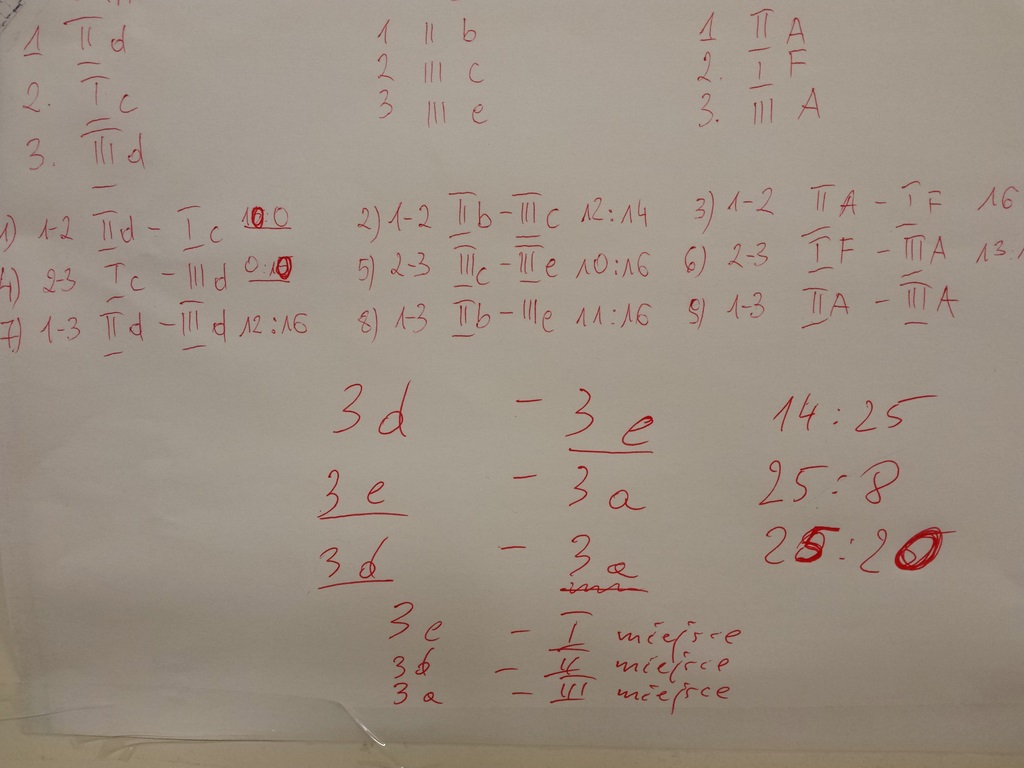 1 II d 1 II b 1 II A
2. I c 2 III c 2. I F
3. III d 3 III e 3. III A
1) 1-2 IId - I c 10:0 2) 1-2 IIb - IIIc 12:14 3) 1-2 IIA - IF 16
4) 2-3 Ic - IIId 0:10 5) 2-3 IIIc - IIIe 10:16 6) 2-3 IF - IIIA 13:1
7) 1-3 IId - IIId 12:16 8) 1-3 IIb - IIIe 11:16 9) 1-3 IIA - IIIA
3d - 3e 14:25
3e - 3a 25:8
3d - 3a 25:20
3e - I miejsce
3d - II miejsce
3a - III miejsce